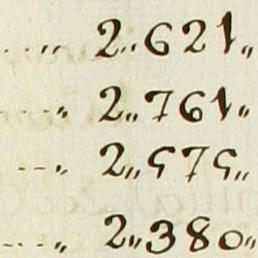 ..,, 2,,621,,
.,, 2,,761,,
--,, 2,,575,,
--.,, 2,,380,,